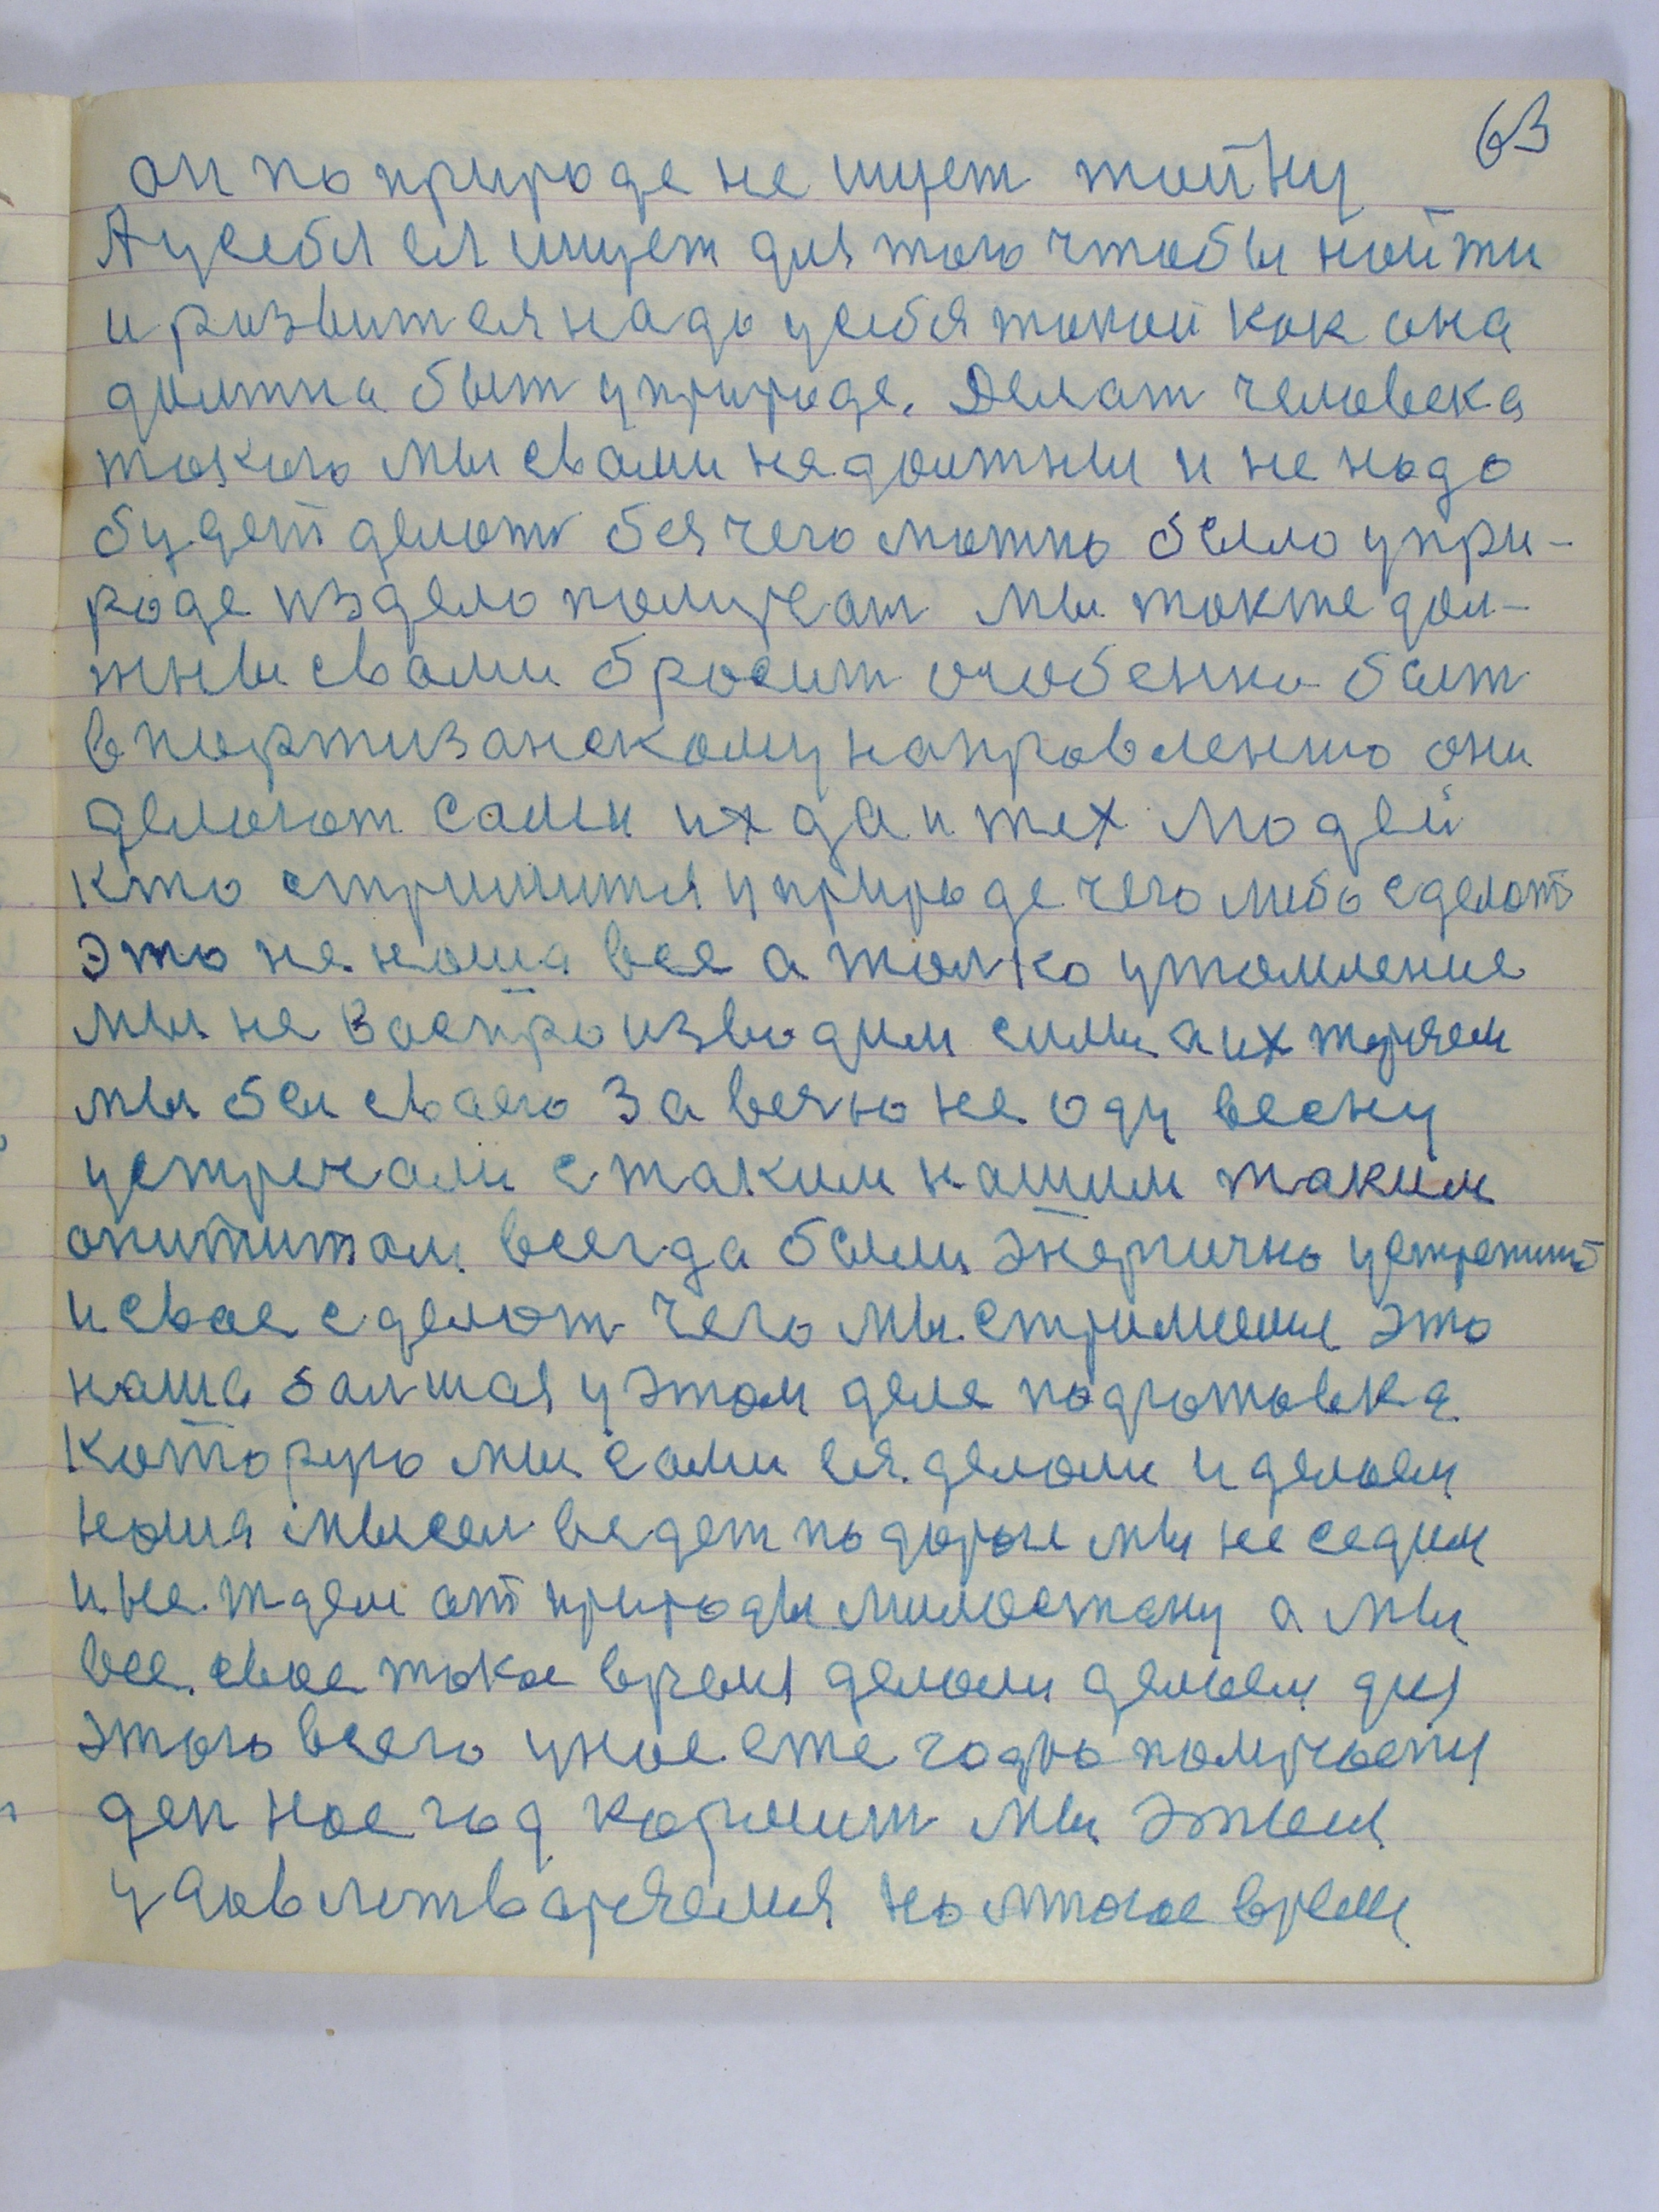 63
он по природе не ищет тойну
А у себя ея ищет для того чтобы нойти
и развится надо у себя токой как она
должна быт у природе. Делат человека
токого мы свами не должны и не нодо
будет делот бея чего можно было упри-
роде издело получат мы токже дол-
жны свами бросит особенно быт
в портизанскому нопровлению они
делоют сами их да и тех людей
кто стримится у природе чего либо сделот
это не ноша вся а толко утомление
мы не васпроизводим силы а их теряем
мы бы сваего За вячю не оду весну
устречали с таким нашим таким
опититом всегда были энергично устретит
и свае сделот чего мы стримемся это
наша балшая у этом деле подготовка
которую мы сами ея делоли и делоем
ноша мысел ведет по дороги мы не седим
и не ждем от природы милостану а мы
все свое токое время делоли делоем для
этого всего у нос еже годно получоется
ден нос год кормит мы этим
удовлетваряемся но многое время